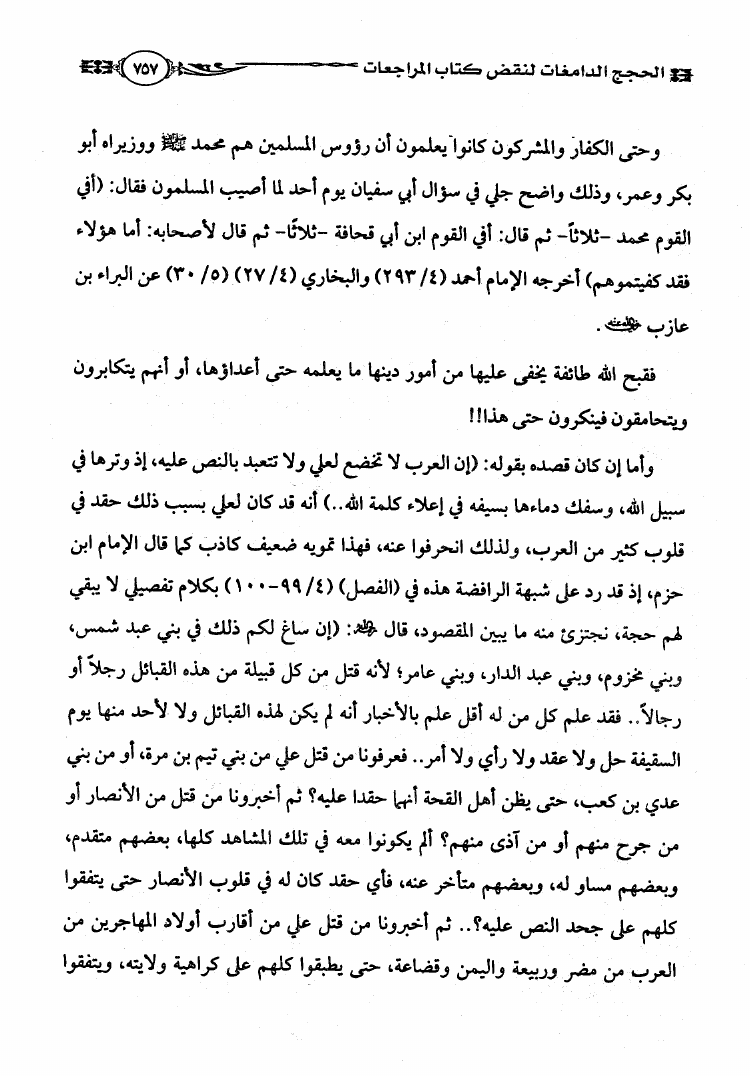 الحجج الدامغات لنقض كتاب المراجعات ٧٥٧
وحتى الكفار والمشركون كانوا يعلمون أن رؤوس المسلمين هم محمد ﷺ ووزيراه أبو
بكر وعمر، وذلك واضح جلي في سؤال أبي سفيان يوم أحد لما أصيب المسلمون فقال: (أفي
القوم محمد -ثلاثاً- ثم قال: أفي القوم ابن أبي قحافة -ثلاثًا- ثم قال لأصحابه: أما هؤلاء
فقد كفيتموهم) أخرجه الإمام أحمد (٤/ ٢٩٣) والبخاري (٤/ ٢٧) (٥/ ٣٠) عن البراء بن
عازب رضي الله عنه.
فقبح الله طائفة يخفى عليها من أمور دينها ما يعلمه حتى أعداؤها، أو أنهم يتكابرون
ويتحامقون فينكرون حتى هذا!!
وأما إن كان قصده بقوله: (إن العرب لا تخضع لعلي ولا تتعبد بالنص عليه، إذ وترها في
سبيل الله، وسفك دماءها بسيفه في إعلاء كلمة الله..) أنه قد كان لعلي بسبب ذلك حقد في
قلوب كثير من العرب، ولذلك انحرفوا عنه، فهذا تمويه ضعيف كاذب كما قال الإمام ابن
حزم، إذ قد رد على شبهة الرافضة هذه في (الفصل) (٤/ ٩٩-١٠٠) بكلام تفصيلي لا يبقي
لهم حجة، نجتزئ منه ما يبين المقصود، قال رحمه الله: (إن ساغ لكم ذلك في بني عبد شمس،
وبني مخزوم، وبني عبد الدار، وبني عامر؛ لأنه قتل من كل قبيلة من هذه القبائل رجلاً أو
رجالاً.. فقد علم كل من له أقل علم بالأخبار أنه لم يكن لهذه القبائل ولا لأحد منها يوم
السقيفة حل ولا عقد ولا رأي ولا أمر.. فعرفونا من قتل علي من بني تيم بن مرة، أو من بني
عدي بن كعب، حتى يظن أهل القحة أنهما حقدا عليه؟ ثم أخبرونا من قتل من الأنصار أو
من جرح منهم أو من آذى منهم؟ ألم يكونوا معه في تلك المشاهد كلها، بعضهم متقدم،
وبعضهم مساو له، وبعضهم متأخر عنه، فأي حقد كان له في قلوب الأنصار حتى يتفقوا
كلهم على جحد النص عليه؟.. ثم أخبرونا من قتل علي من أقارب أولاد المهاجرين من
العرب من مضر وربيعة واليمن وقضاعة، حتى يطبقوا كلهم على كراهية ولايته، ويتفقوا